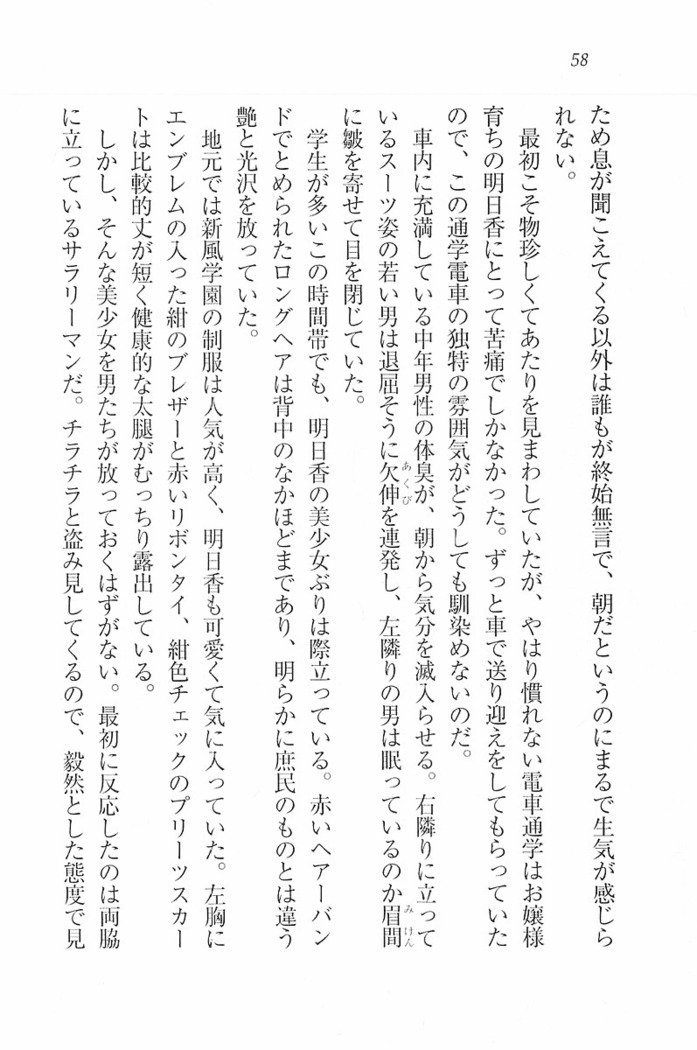 58
ため息が聞こえてくる以外は誰もが終始無言で、朝だというのにまるで生気が感じら
れない。
最初こそ物珍しくてあたりを見まわしていたが、やはり慣れない電車通学はお嬢様
育ちの明日香にとって苦痛でしかなかった。ずっと車で送り迎えをしてもらっていた
ので、この通学電車の独特の雰囲気がどうしても馴染めないのだ。
車内に充満している中年男性の体臭が、朝から気分を滅入らせる。右隣りに立って
いるスーツ姿の若い男は退屈そうに欠伸あくびを連発し、左隣りの男は眠っているのか眉間みけん
に皺を寄せて目を閉じていた。
学生が多いこの時間帯でも、明日香の美少女ぶりは際立っている。赤いヘアーバン
ドでとめられたロングヘアは背中のなかほどまであり、明らかに庶民のものとは違う
艶と光沢を放っていた。
地元では新風学園の制服は人気が高く、明日香も可愛くて気に入っていた。左胸に
エンブレムの入った紺のブレザーと赤いリボンタイ、紺色チェックのプリーツスカー
トは比較的丈が短く健康的な太腿がむっちり露出している。
しかし、そんな美少女を男たちが放っておくはずがない。最初に反応したのは両脇
に立っているサラリーマンだ。チラチラと盗み見してくるので、毅然とした態度で見